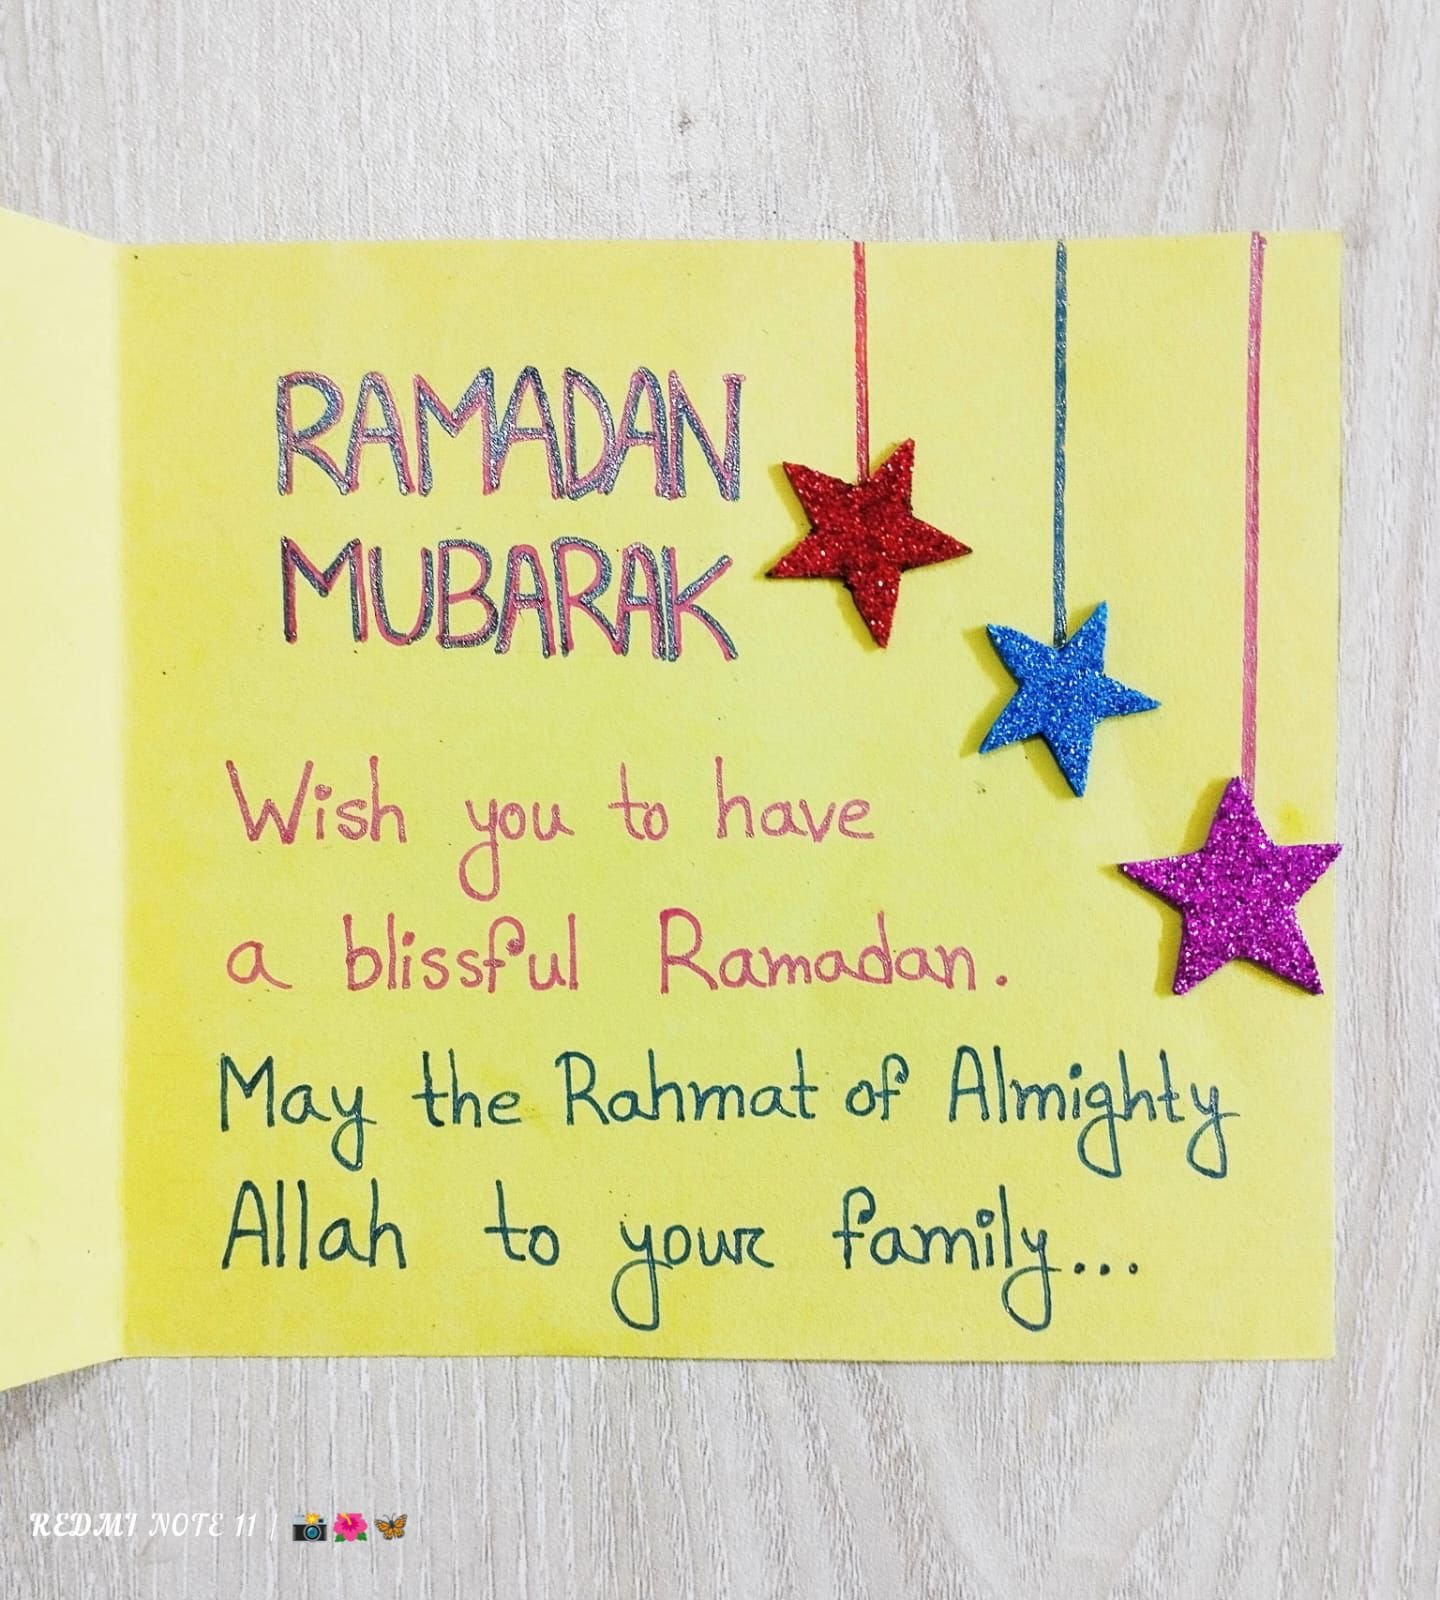 RAMADAN
MUBARAK
Wish you to have
a blissful Ramadan.
May the Rahmat of Almighty
Allah to your family...
REDMI NOTE 11 | 📸🌺🦋